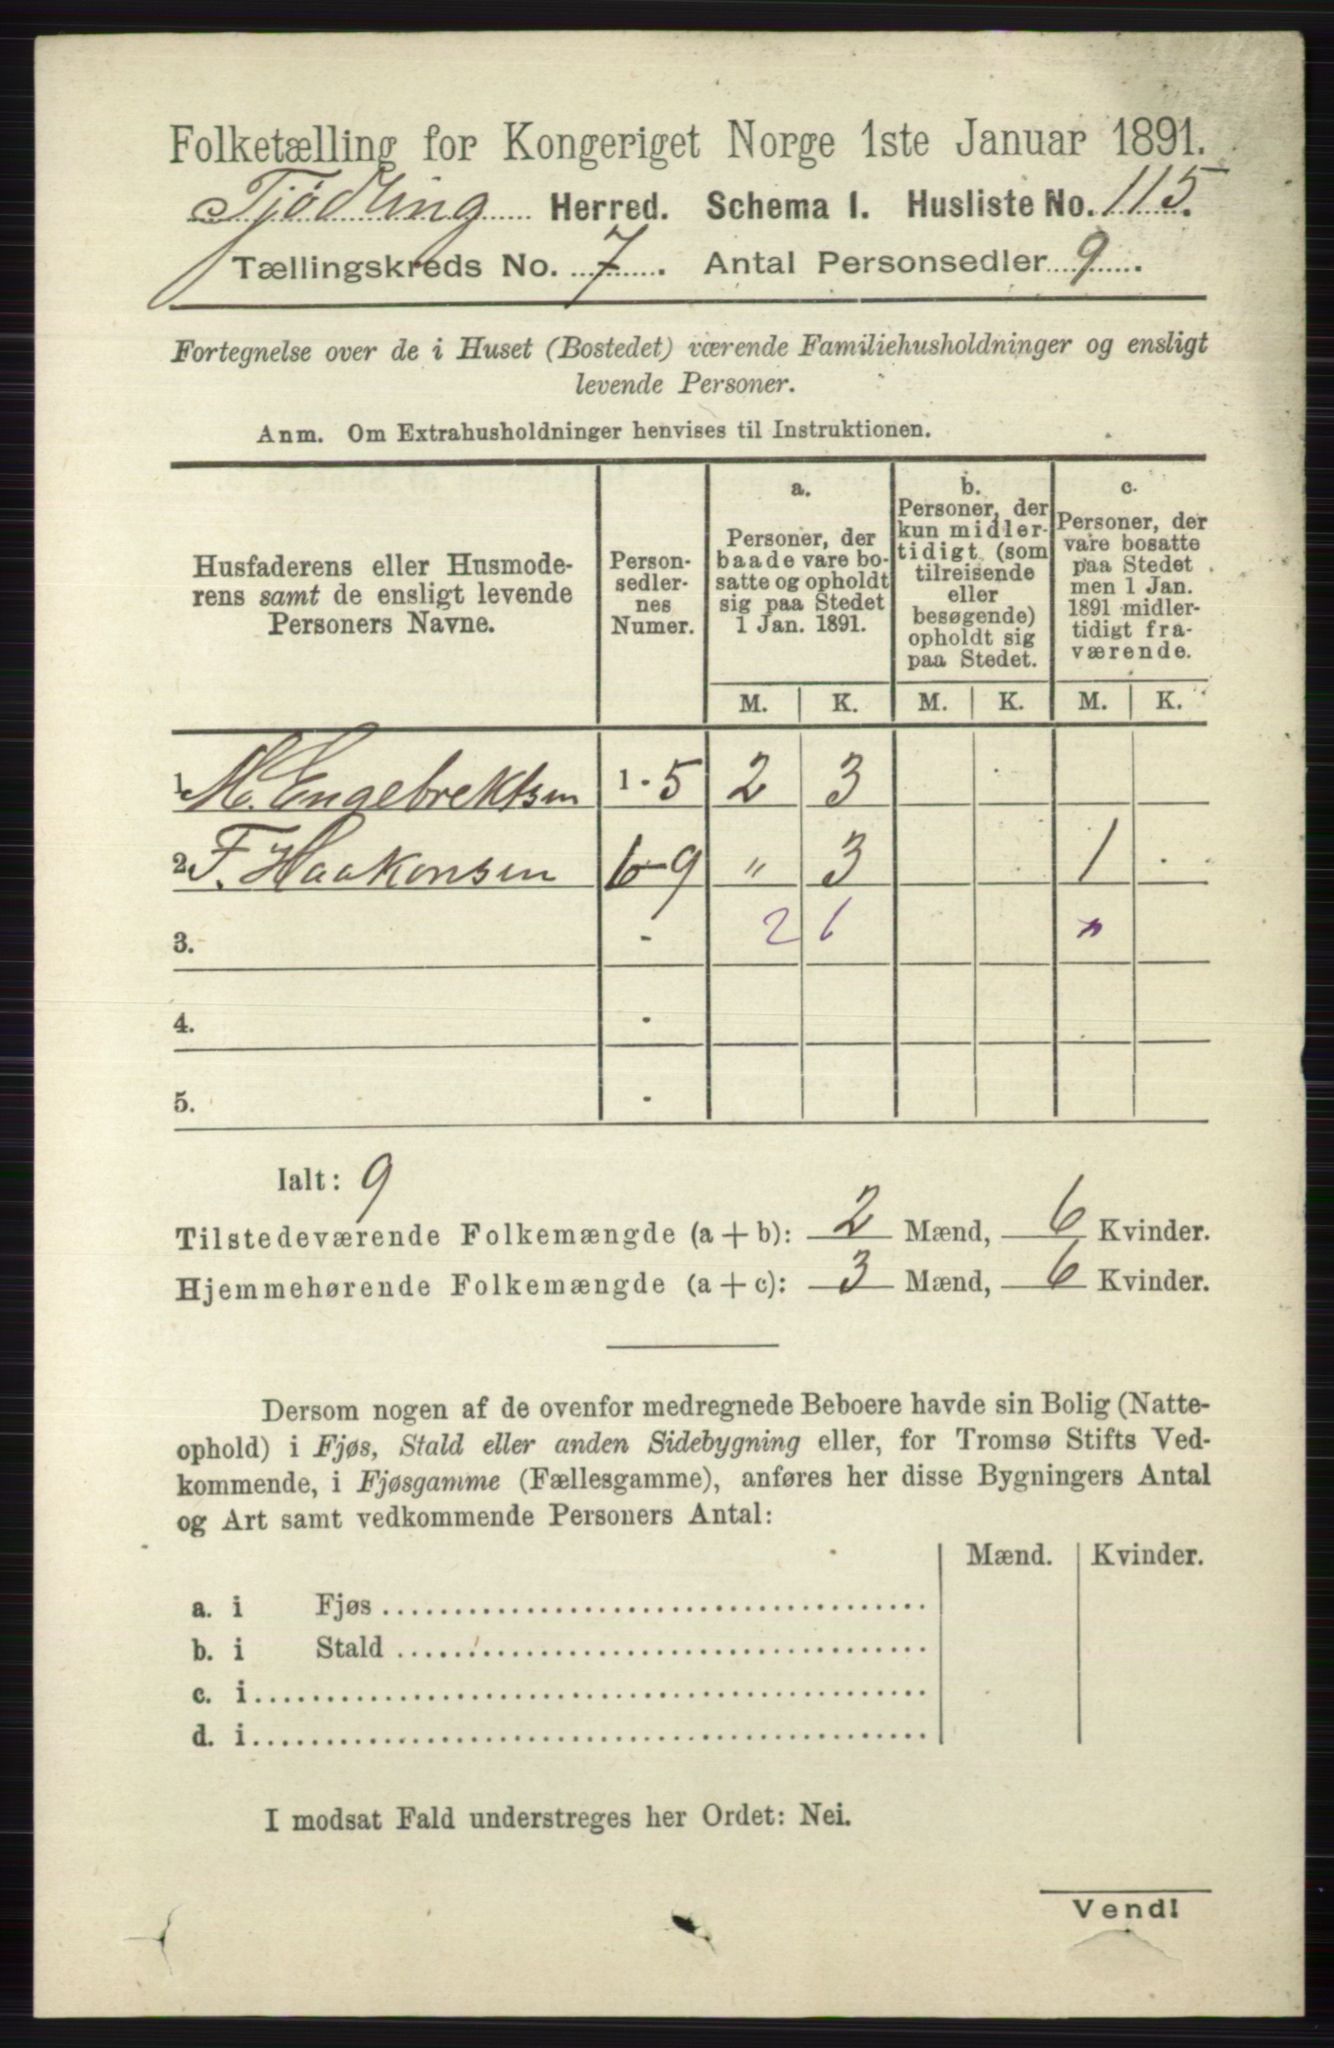 Folketælling for Kongeriget Norge 1ste Januar 1891.
Tjödling Herred. Schema I. Husliste No. 115.
Tællingskreds No. 7. Antal Personsedler 9.
Fortegnelse over de i Huset (Bostedet) værende Familiehusholdninger og ensligt
levende Personer.
Anm. Om Extrahusholdninger henvises til Instruktionen.
Husfaderens eller Husmode-
rens samt de ensligt levende
Personers Navne.
Person-
sedler-
nes
Numer.
a.
Personer, der
baade vare bo-
satte og opholdt
sig paa Stedet
1 Jan. 1891.
b.
Personer, der
kun midler-
tidigt (som
tilreisende
eller
besøgende)
opholdt sig
paa Stedet.
c.
Personer, der
vare bosatte
paa Stedet
men 1 Jan.
1891 midler-
tidigt fra-
værende.
M. K. M. K. M. K.
1. M. Engebrektsen 1 - 5 2 3
2. F. Haakonsen 6-9 " 3 1
3. - 2 6
4. -
5. -
Ialt: 9
Tilstedeværende Folkemængde (a + b): 2 Mænd, 6 Kvinder.
Hjemmehørende Folkemængde (a + c): 3 Mænd, 6 Kvinder.
Dersom nogen af de ovenfor medregnede Beboere havde sin Bolig (Natte-
ophold) i Fjøs, Stald eller anden Sidebygning eller, for Tromsø Stifts Ved-
kommende, i Fjøsgamme (Fællesgamme), anføres her disse Bygningers Antal
og Art samt vedkommende Personers Antal:
Mænd. Kvinder.
a. i Fjøs
b. i Stald
c. i
d. i
I modsat Fald understreges her Ordet: Nei.
Vend!